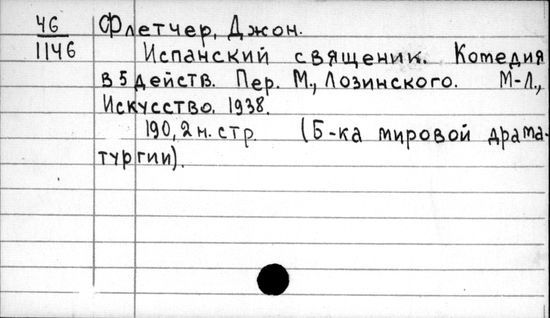 46 Флетчер, Джон.
1146 Испанский священик. Комедия
в 5 действ. Пер. М., Лозинского. М-Л.,
Искусство. 1938.
190, 2 н. стр. (Б-ка мировой драма-
тургии).